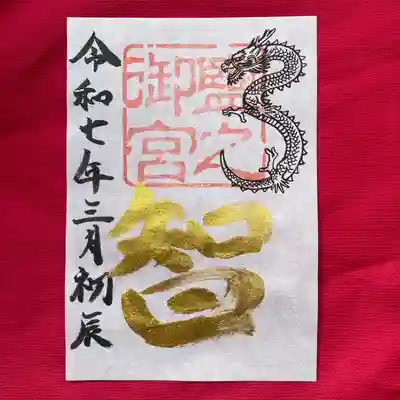 之
御宮
智
令和七年三月初辰